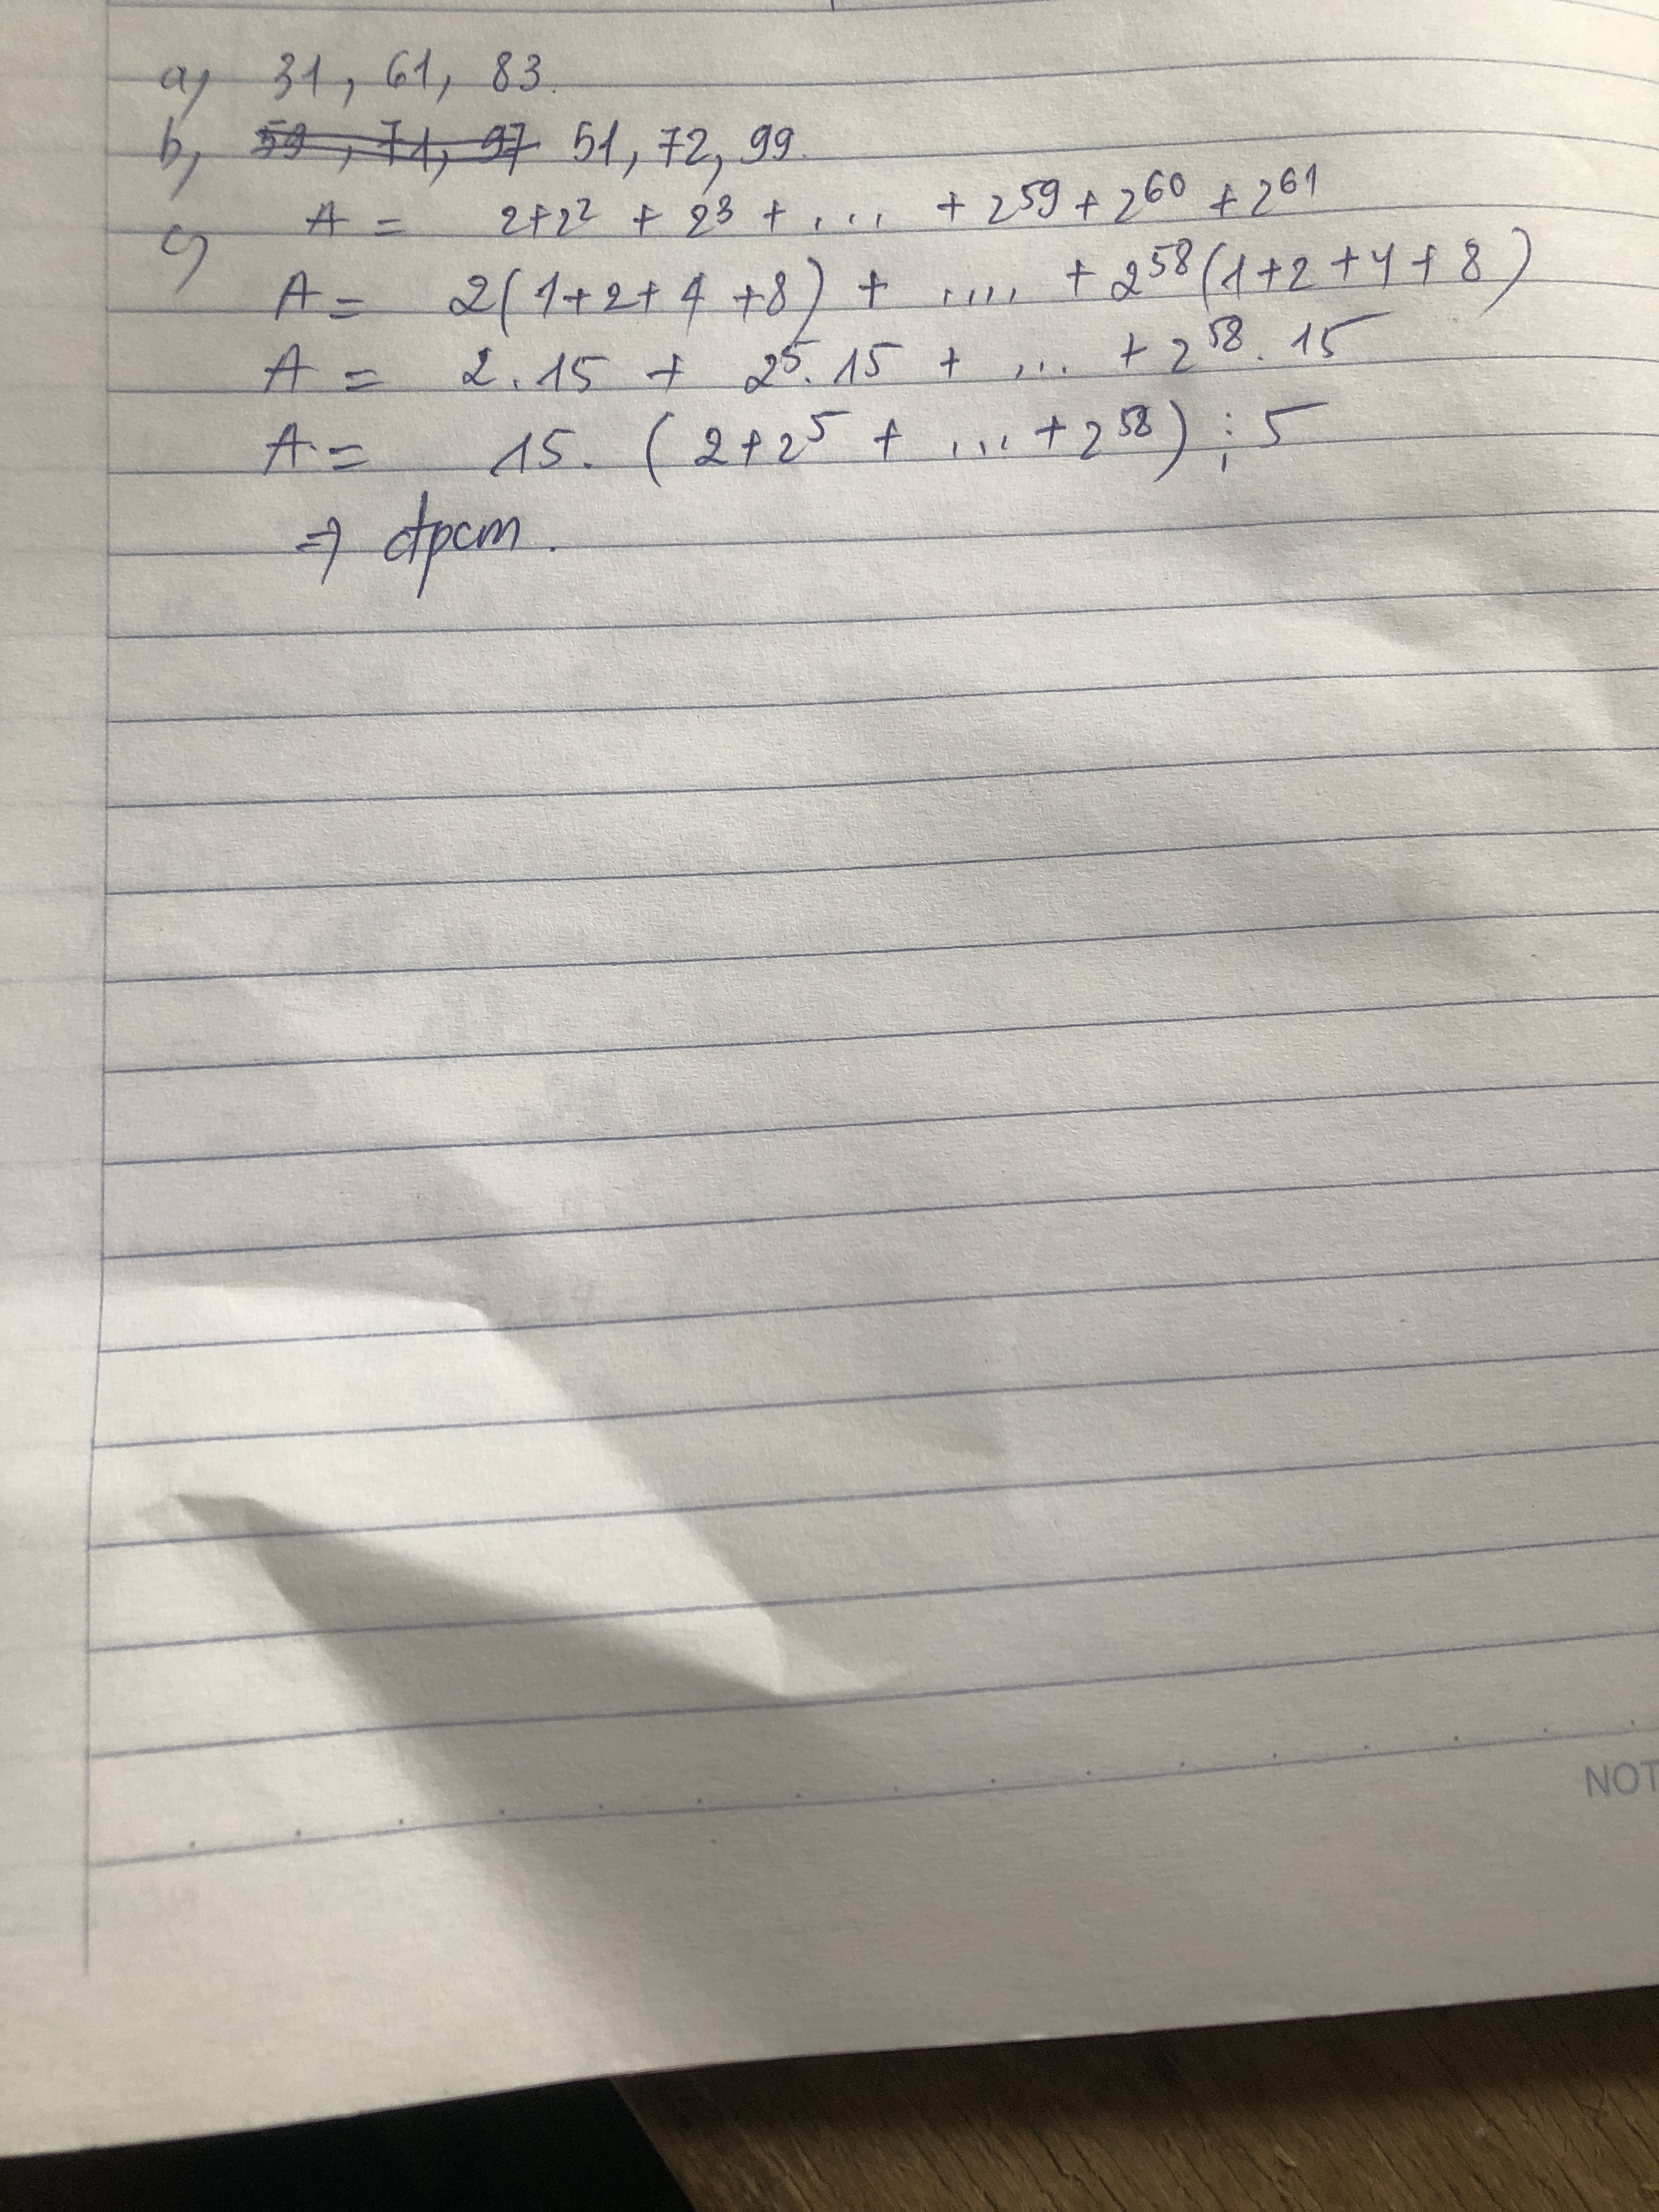 a, 31, 61, 83.
b, 59, 71, 97 51, 72, 99.
c, A = 2+2² + 2³ + ... + 2⁵⁹ + 2⁶⁰ + 2⁶¹
A = 2(1+2+4+8) + .... + 2⁵⁸(1+2+4+8)
A = 2.15 + 2⁵.15 + ... + 2⁵⁸.15
A = 15.(2+2⁵ + ... + 2⁵⁸) ⋮ 5
=> đpcm.
NOT